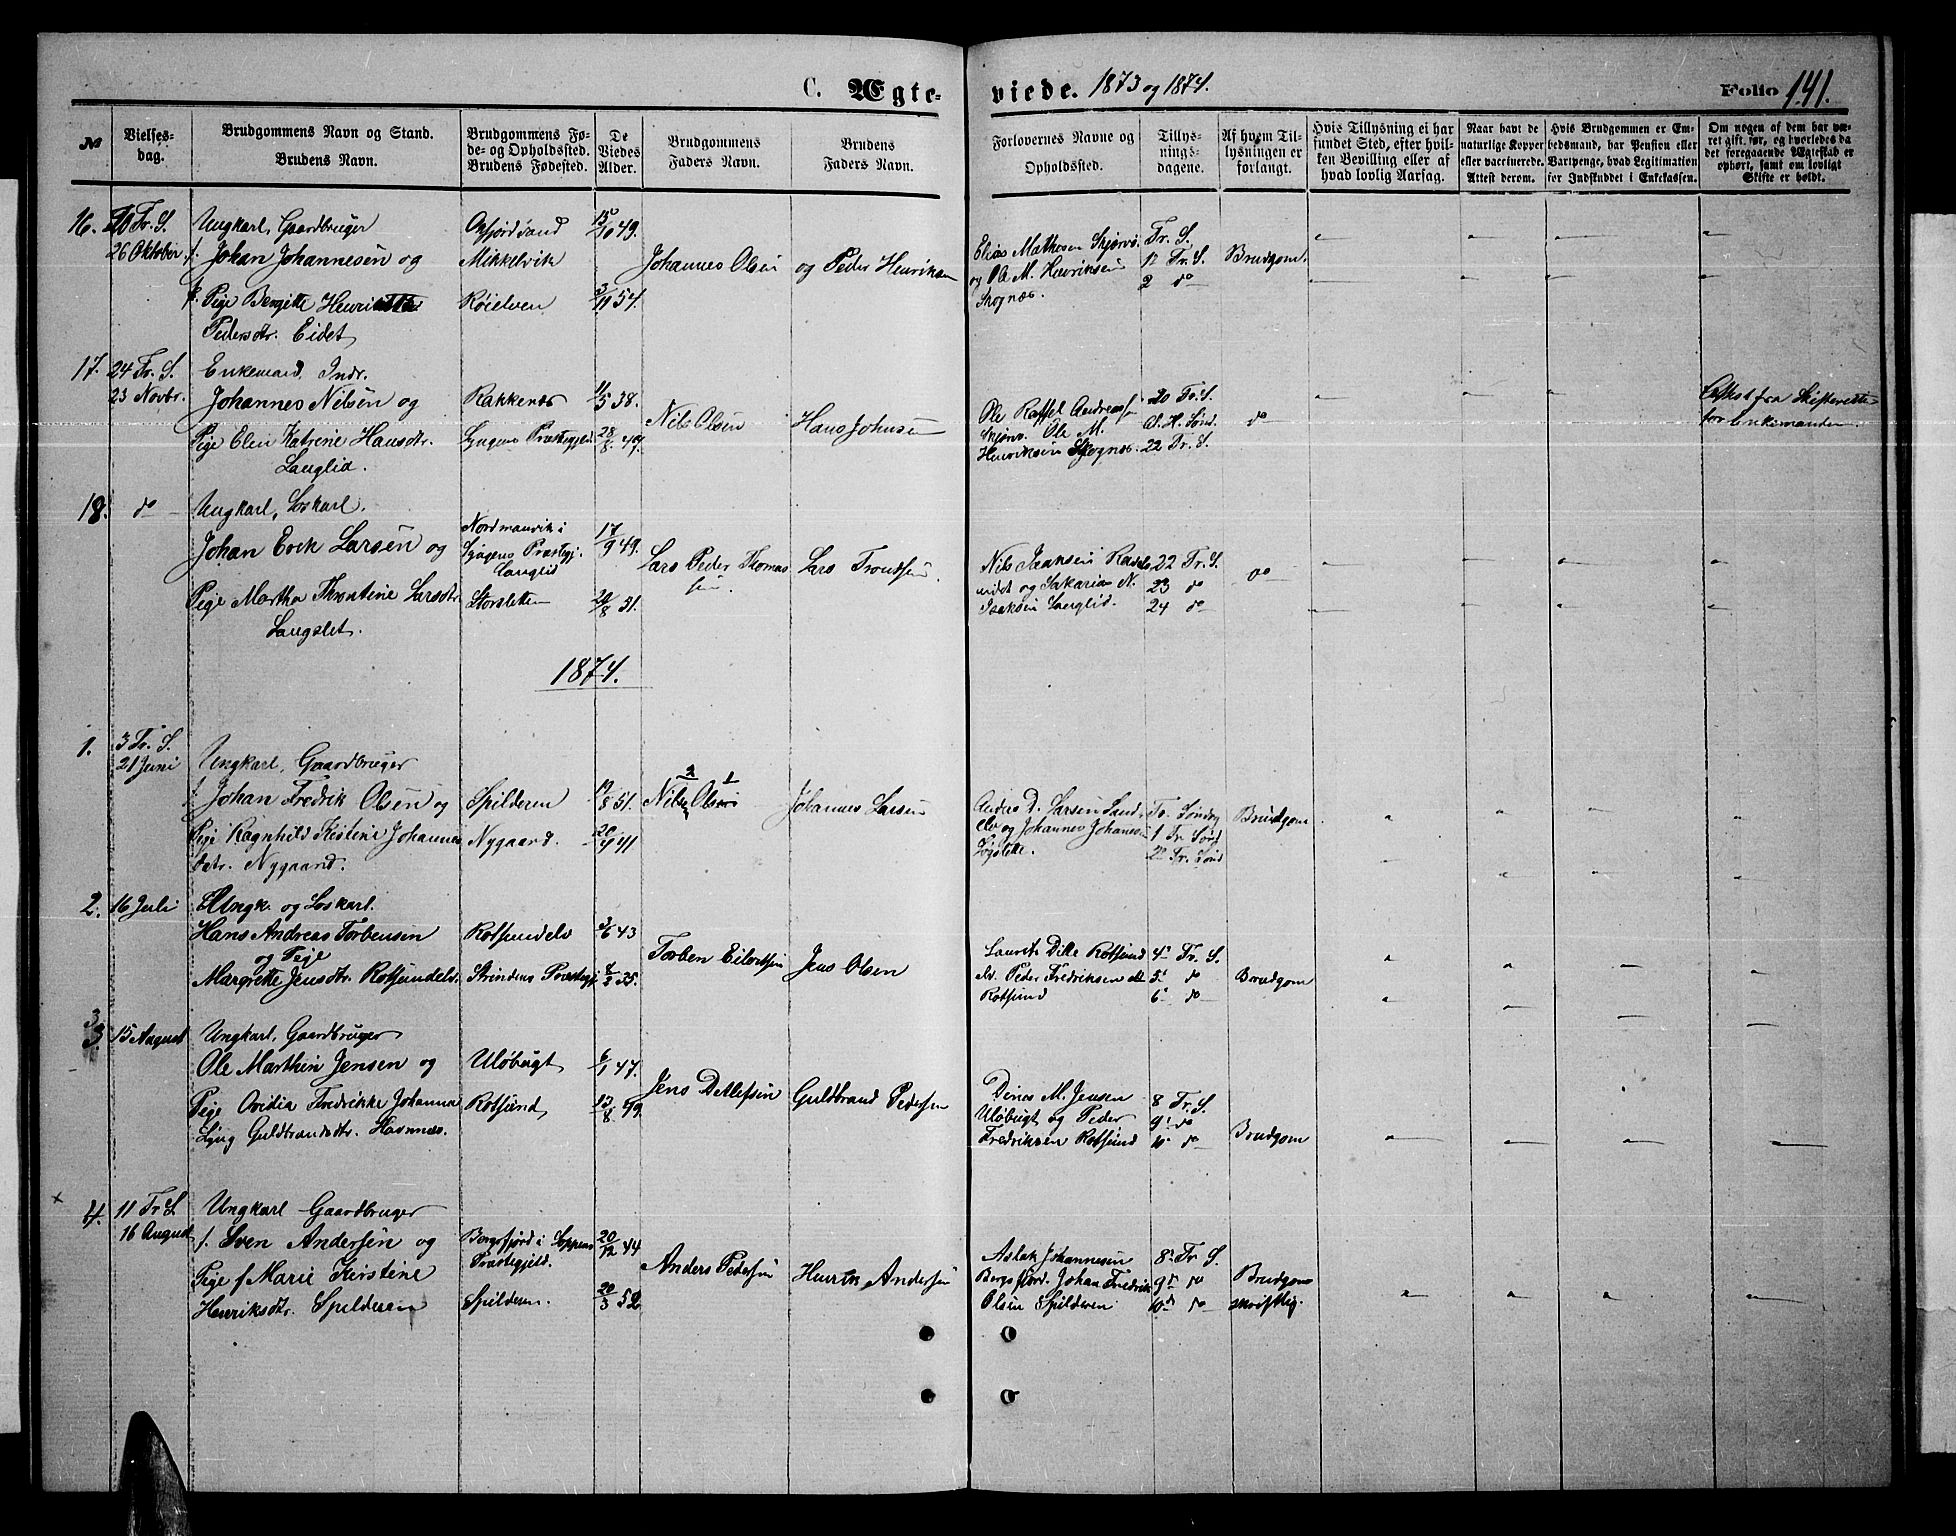 C. Ægteviede. 1873 og 1874.
Folio 141.
№
Vielses-
dag.
Brudgommens Navn og Stand.
Brudens Navn.
Brudgommens Fø-
de- og Opholdssted.
Brudens Fødested.
De
Viedes
Alder.
Brudgommens
Faders Navn.
Brudens
Faders Navn.
Forlovernes Navne og
Opholdssted.
Tillys-
nings-
dagene.
Af hvem Til-
lysningen er
forlangt.
Hvis Tillysning ei har
fundet Sted, efter hvil-
ken Bevilling eller af
hvad lovlig Aarsag.
Naar havt de
naturlige Kopper
eller vaccinerede.
Attest derom.
Hvis Brudgommen er Em-
bedsmand, har Pension eller
Vartpenge, hvad Legitimation
for Indskuddet i Enkekassen.
Om nogen af dem har væ-
ret gift før, og hvorledes da
det foregaaende Ægteskab er
ophørt, samt om lovligt
Skifte er holdt.
16. 20 Tr. S.
26 Oktober
Ungkarl, Gaardbruger
f. Johan Johannesen og
Pige Bergitte
Pedersdtr. Eidet
Oxfjordsand
Mikkelvik
Røielven
15/10 49.
3/11 54.
Johannes Olsen
og Peder Henriksen
Elias Mathesen Skjervø.
og Ole M. Henriksen
Skognæs.
Tr. S.
1ste Tr. S.
2 do
Brudgom.
17. 24 Tr. S.
23 Novbr.
Enkemand, Indr.
Johannes Nilsen og
Pige Elen Katrine Hansdtr.
Langlid.
Rakkenæs
Lyngens Præstegjeld
11/5 38.
28/8 49.
Nils Olsen
Hans Johnsen
Ole Raffel Andreas
Skjervø. Ole M.
Henriksen Skognæs.
20 Tr. S.
A. H. Sønd.
22 Tr. S.
do
Attest fra Skifteretten
for Enkemanden
18. do
Ungkarl, Løskarl.
Johan Erik Larsen og
Pige Martha Threntine Larsdtr.
Langslet.
Nordmanvik i
Lyngens Præstegj.
Langlid
Storsletten
17/9 49.
20/8 51.
Lars Peder Thomas
sen.
Lars Trondsen.
Nils Isaksen
og Sakarias N.
Isaksen Langlid.
22 Tr. S.
23 do
24 do
do
1874.
1. 3 Tr. S.
21 Juni
Ungkarl, Gaardbruger
f. Johan Fredrik Olsen og
Pige Ragnhild Kistine Johannes
datr. Nygaard.
Spilderen
Nygaard.
19/8 51.
20/4 41
2 1
Nils Olsen
Johannes Larsen
Anders D. Larsen Sand
elv og Johannes Johanesen
To. Søndag
1 Tr. Sønd
2 Tr. Sønd
Brudgom
2. 16 Juli
Ungk. og Løskarl.
Hans Andreas Torbensen
og Pige
Margrette Jensdtr. Rotsundelv.
Rotsundelv
Strindens Præstegj.
3/6 43
8/3 35.
Torben Eilertsen
Jens Olsen
Laurits Dille Rotsund
elv. Peder Fredriksen
Rotsund
4de Tr. S.
5te do
6te do
Brudgom
3. 15 August
Ungkarl, Gaardbruger
Ole Marthin Jensen og
Pige Ovidia Fredrikke Johanna
Lyng Guldbrandsdtr. Havnnæs.
Uløbugt
Rotsund
6/1 47.
13/8 49.
Jens Detlefsen
Guldbrand Pedersen
Dines M. Jensen
Uløbugt og Peder
Fredriksen Rotsund
8 Tr. S.
9de do
10de do
Brudgom
4. 11 Tr. S
16 August
Ungkarl Gaardbruger
f. Sven Andersen og
Pige f Marie Kirstine
Henriksdtr. Spilderen
Bergsfjord i Loppens
Præstegjeld.
Spilderen.
20/12 44
20/3 52
Anders Pedersen
Henrik Andersen
Aslak Johannesen
Bergsfjord. Johan Fredrik
Olsen Spilderen
8de Tr. S.
9de do
10de do
Brudgom
skriftlig.